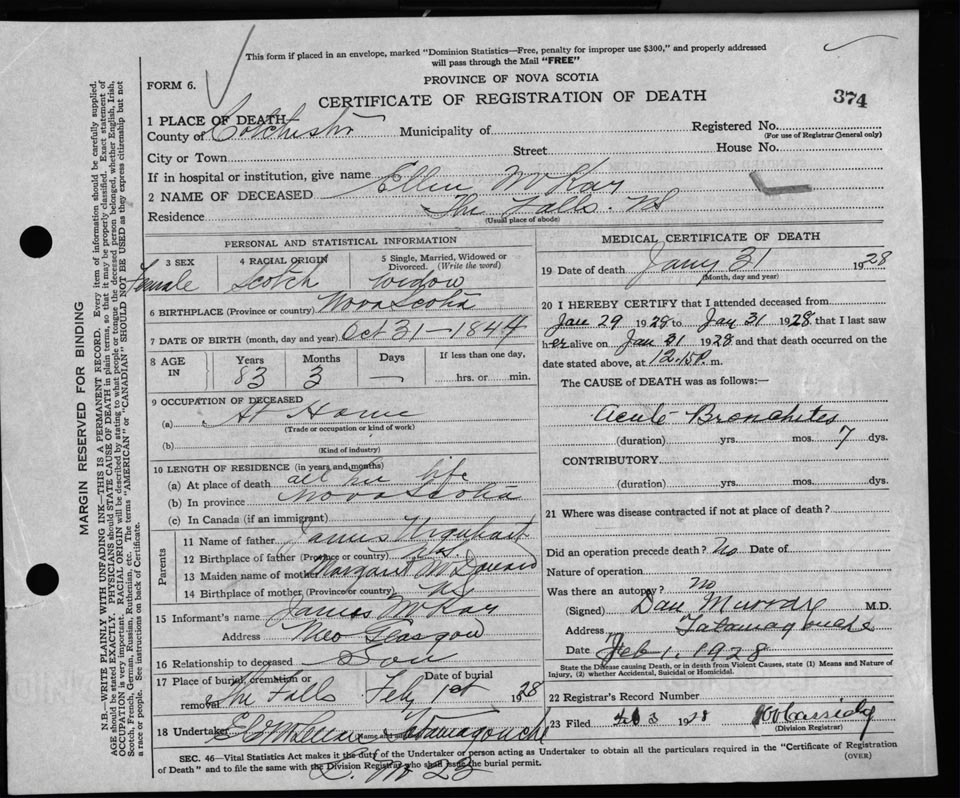 This form if placed in an envelope, marked "Dominion Statistics—Free, penalty for improper use $300," and properly addressed
will pass through the Mail "FREE"
FORM 6.
PROVINCE OF NOVA SCOTIA
CERTIFICATE OF REGISTRATION OF DEATH
374
1 PLACE OF DEATH
County of Colchester Municipality of Registered No.
(For use of Registrar General only)
City or Town Street House No.
If in hospital or institution, give name
2 NAME OF DECEASED Ellen McKay
Residence The Falls. NS
(Usual place of abode)
PERSONAL AND STATISTICAL INFORMATION
3 SEX Female
4 RACIAL ORIGIN Scotch
5 Single, Married, Widowed or Divorced. (Write the word) widow
6 BIRTHPLACE (Province or country) Nova Scotia
7 DATE OF BIRTH (month, day and year) Oct 31—1844
8 AGE IN Years 83 Months 3 Days — If less than one day, hrs. or min.
9 OCCUPATION OF DECEASED
(a) At Home
(Trade or occupation or kind of work)
(b)
(Kind of industry)
10 LENGTH OF RESIDENCE (in years and months)
(a) At place of death all her life
(b) In province Nova Scotia
(c) In Canada (if an immigrant)
Parents
11 Name of father James Urquhart
12 Birthplace of father (Province or country) NS.
13 Maiden name of mother Margaret
14 Birthplace of mother (Province or country) NS
15 Informant's name James McKay
Address New Glasgow
16 Relationship to deceased Son
17 Place of burial, cremation or removal The Falls Date of burial Feby 1st 1928
18 Undertaker Tatamagouche
(Name and address)
MEDICAL CERTIFICATE OF DEATH
19 Date of death Jany 31 1928
(Month, day and year)
20 I HEREBY CERTIFY that I attended deceased from
Jan 29 1928 to Jan 31 1928 that I last saw
her alive on Jan 31 1928 and that death occurred on the
date stated above, at 12.15 P. m.
The CAUSE OF DEATH was as follows:—
Acute Bronchitis
(duration) yrs. mos. 7 dys.
CONTRIBUTORY
(duration) yrs. mos. dys.
21 Where was disease contracted if not at place of death?
Did an operation precede death? No Date of
Nature of operation
Was there an autopsy? no
(Signed) Dan Murray M.D.
Address Tatamagouche
Date Feb 1. 1928
State the Disease causing Death, or in death from Violent Causes, state (1) Means and Nature of
Injury, (2) whether Accidental, Suicidal or Homicidal.
22 Registrar's Record Number
23 Filed Feb 3 1928 Cassidy
(Division Registrar)
SEC. 46—Vital Statistics Act makes it the duty of the Undertaker or person acting as Undertaker to obtain all the particulars required in the "Certificate of Registration
of Death" and to file the same with the Division Registrar who shall issue the burial permit.
(OVER)
MARGIN RESERVED FOR BINDING
N.B.—WRITE PLAINLY WITH UNFADING INK—THIS IS A PERMANENT RECORD. Every item of information should be carefully supplied.
AGE should be stated EXACTLY. PHYSICIANS should STATE CAUSE OF DEATH in plain terms, so that it may be properly classified. Exact statement of
OCCUPATION is very important. RACIAL ORIGIN will be described by stating to what people or tongue the deceased person belonged, whether English, Irish,
Scotch, French, German, Russian, Ruthenian, etc. The terms "AMERICAN" or "CANADIAN" SHOULD NOT BE USED as they express citizenship but not
a race or people. See instructions on back of Certificate.